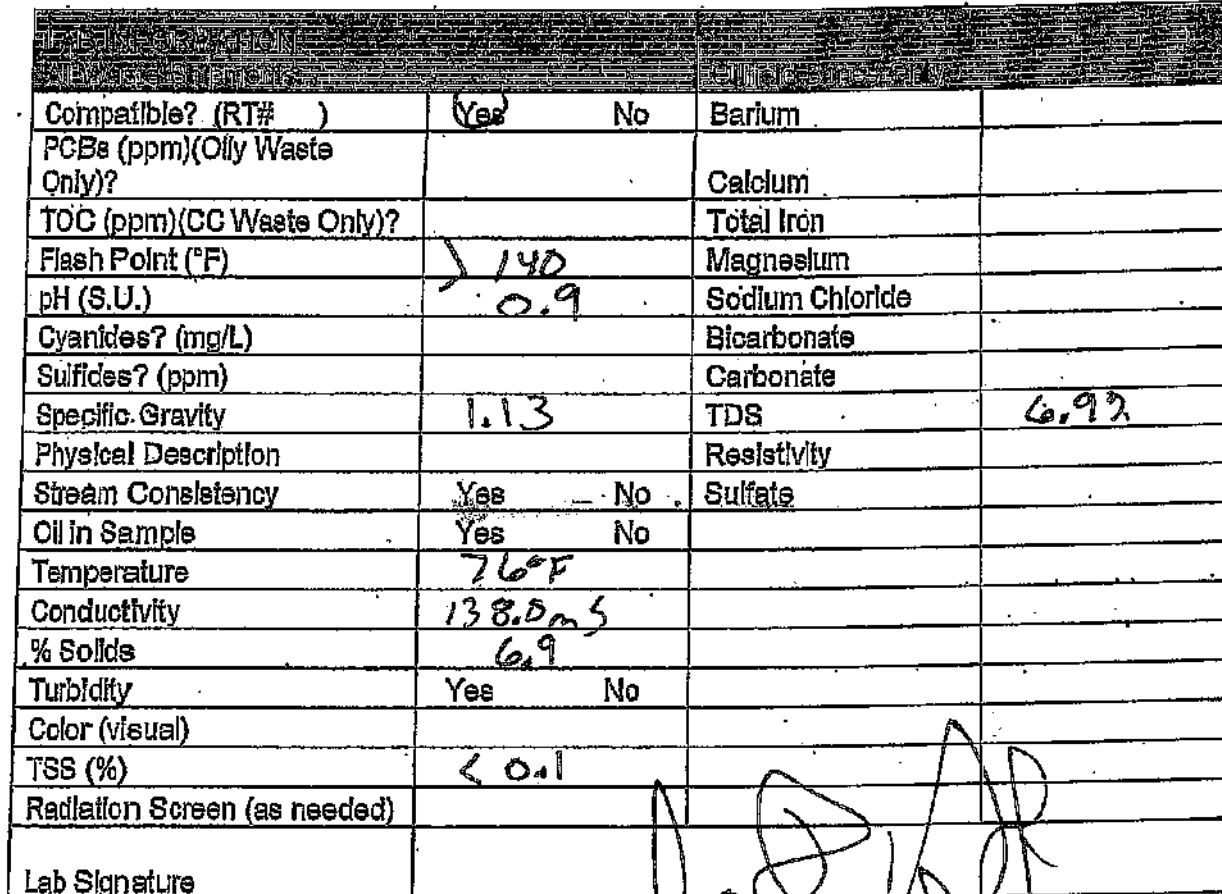 LAB INFORMATION
All Waste Shipments
Compatible? (RT# ) Yes No Barium
PCBs (ppm)(Oily Waste
Only)? Calcium
TOC (ppm)(CC Waste Only)? Total Iron
Flash Point (°F) > 140 Magnesium
pH (S.U.) 0.9 Sodium Chloride
Cyanides? (mg/L) Bicarbonate
Sulfides? (ppm) Carbonate
Specific Gravity 1.13 TDS 6.9%
Physical Description Resistivity
Stream Consistency Yes No Sulfate
Oil in Sample Yes No
Temperature 76°F
Conductivity 138.0 mS
% Solids 6.9
Turbidity Yes No
Color (visual)
TSS (%) < 0.1
Radiation Screen (as needed)
Lab Signature